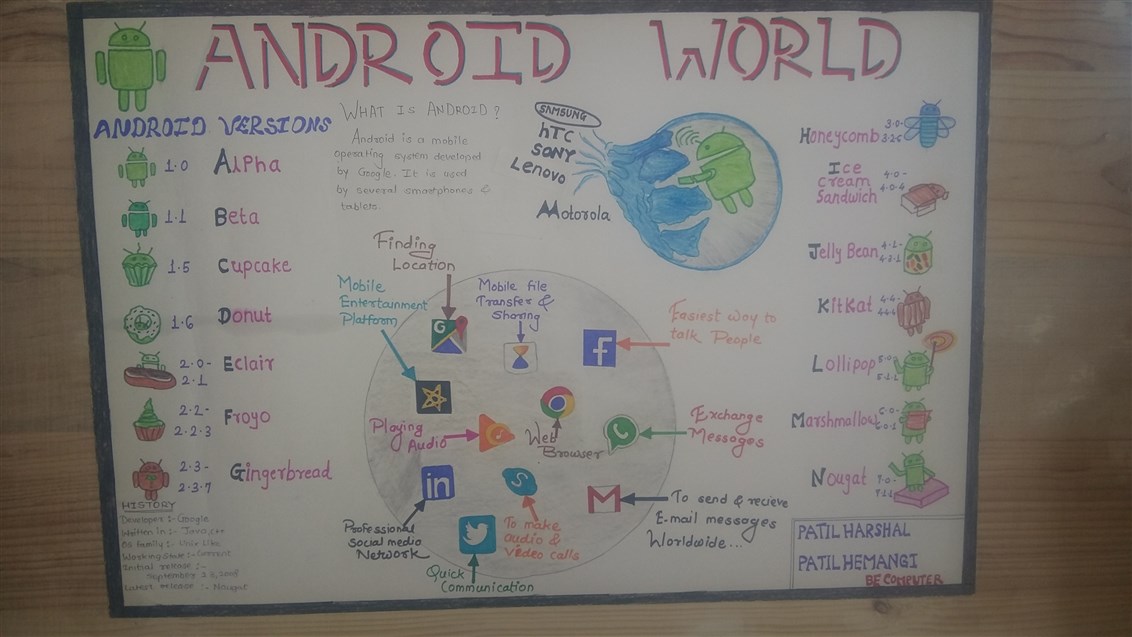 ANDROID WORLD
ANDROID VERSIONS
1.0 Alpha
1.1 Beta
1.5 Cupcake
1.6 Donut
2.0-
2.1
Eclair
2.2-
2.2.3
Froyo
2.3-
2.3.7
Gingerbread
WHAT IS ANDROID?
Android is a mobile
operating system developed
by Google. It is used
by several smartphones &
tablets.
SAMSUNG
hTC
SONY
Lenovo
Motorola
Honeycomb
3.0-
Ice
cream
Sandwich
4.0-
4.0.4
Jelly Bean
4.1-
KitKat
4.4-
Lollipop
5.0-
Marshmallow
Nougat
7.0-
Finding
Location
Mobile
Entertainment
Platform
Mobile file
Transfer &
Sharing
Easiest way to
talk People
G
f
Playing
Audio
Web
Browser
Exchange
Messages
in
S
M
Professional
social media
Network
To make
audio &
video calls
To send & recieve
E-mail messages
Worldwide...
Quick
Communication
HISTORY
Developer :- Google
Written in :- Java, C++
OS family :- Unix Like
Working state :- Current
Initial release :-
September 23, 2008
Latest release :- Nougat
PATIL HARSHAL
PATIL HEMANGI
BE COMPUTER